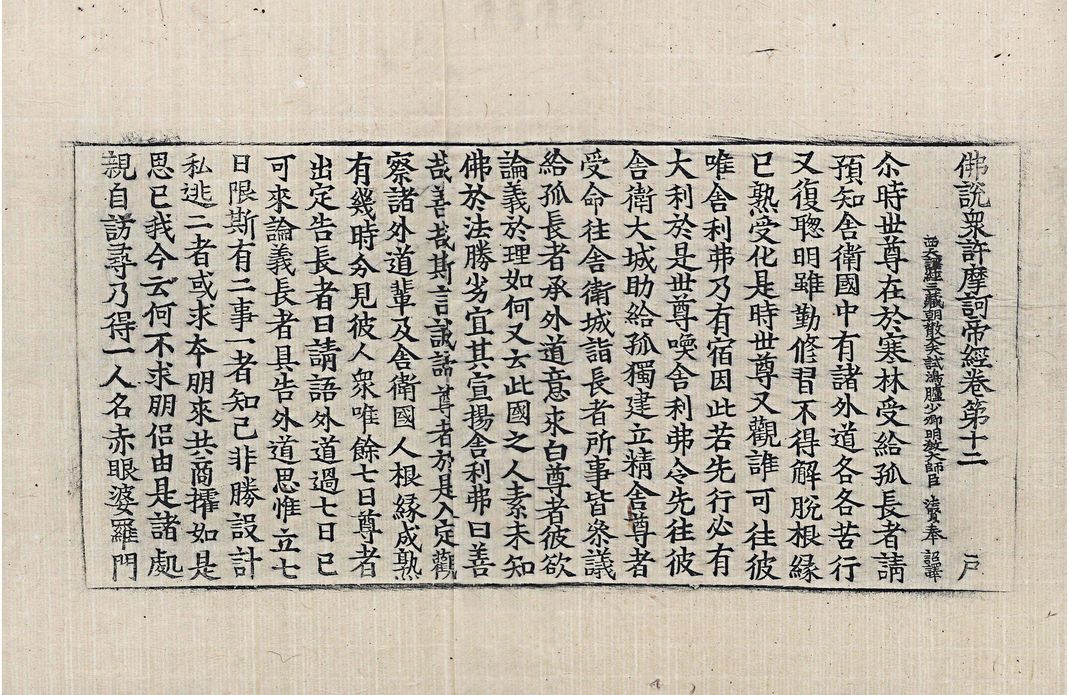 佛說衆許摩訶帝經卷第十二 戶
西天譯經三藏朝散大夫試鴻臚少卿明教大師臣 法賢奉 詔譯
尒時世尊在於寒林受給孤長者請
預知舍衛國中有諸外道各各苦行
又復聦明雖勤修習不得解脫根縁
已熟受化是時世尊又觀誰可往彼
唯舍利弗乃有宿因此若先行必有
大利於是世尊喚舍利弗令先往彼
舍衛大城助給孤獨建立精舍尊者
受命往舍衛城詣長者所事皆叅議
給孤長者承外道意來白尊者彼欲
論義於理如何又去此國之人素未知
佛於法勝劣宜其宣揚舍利弗曰善
哉善哉斯言誠諦尊者於是入定觀
察諸外道軰及舍衛國人根縁成熟
有幾時分見彼人衆唯餘七日尊者
出定告長者曰請語外道過七日已
可來論義長者具告外道思惟立七
日限斯有二事一者知己非勝設計
私逃二者或求夲朋來共商㩁如是
思已我今云何不求朋侣由是諸處
親自訪尋乃得一人名赤眼婆羅門